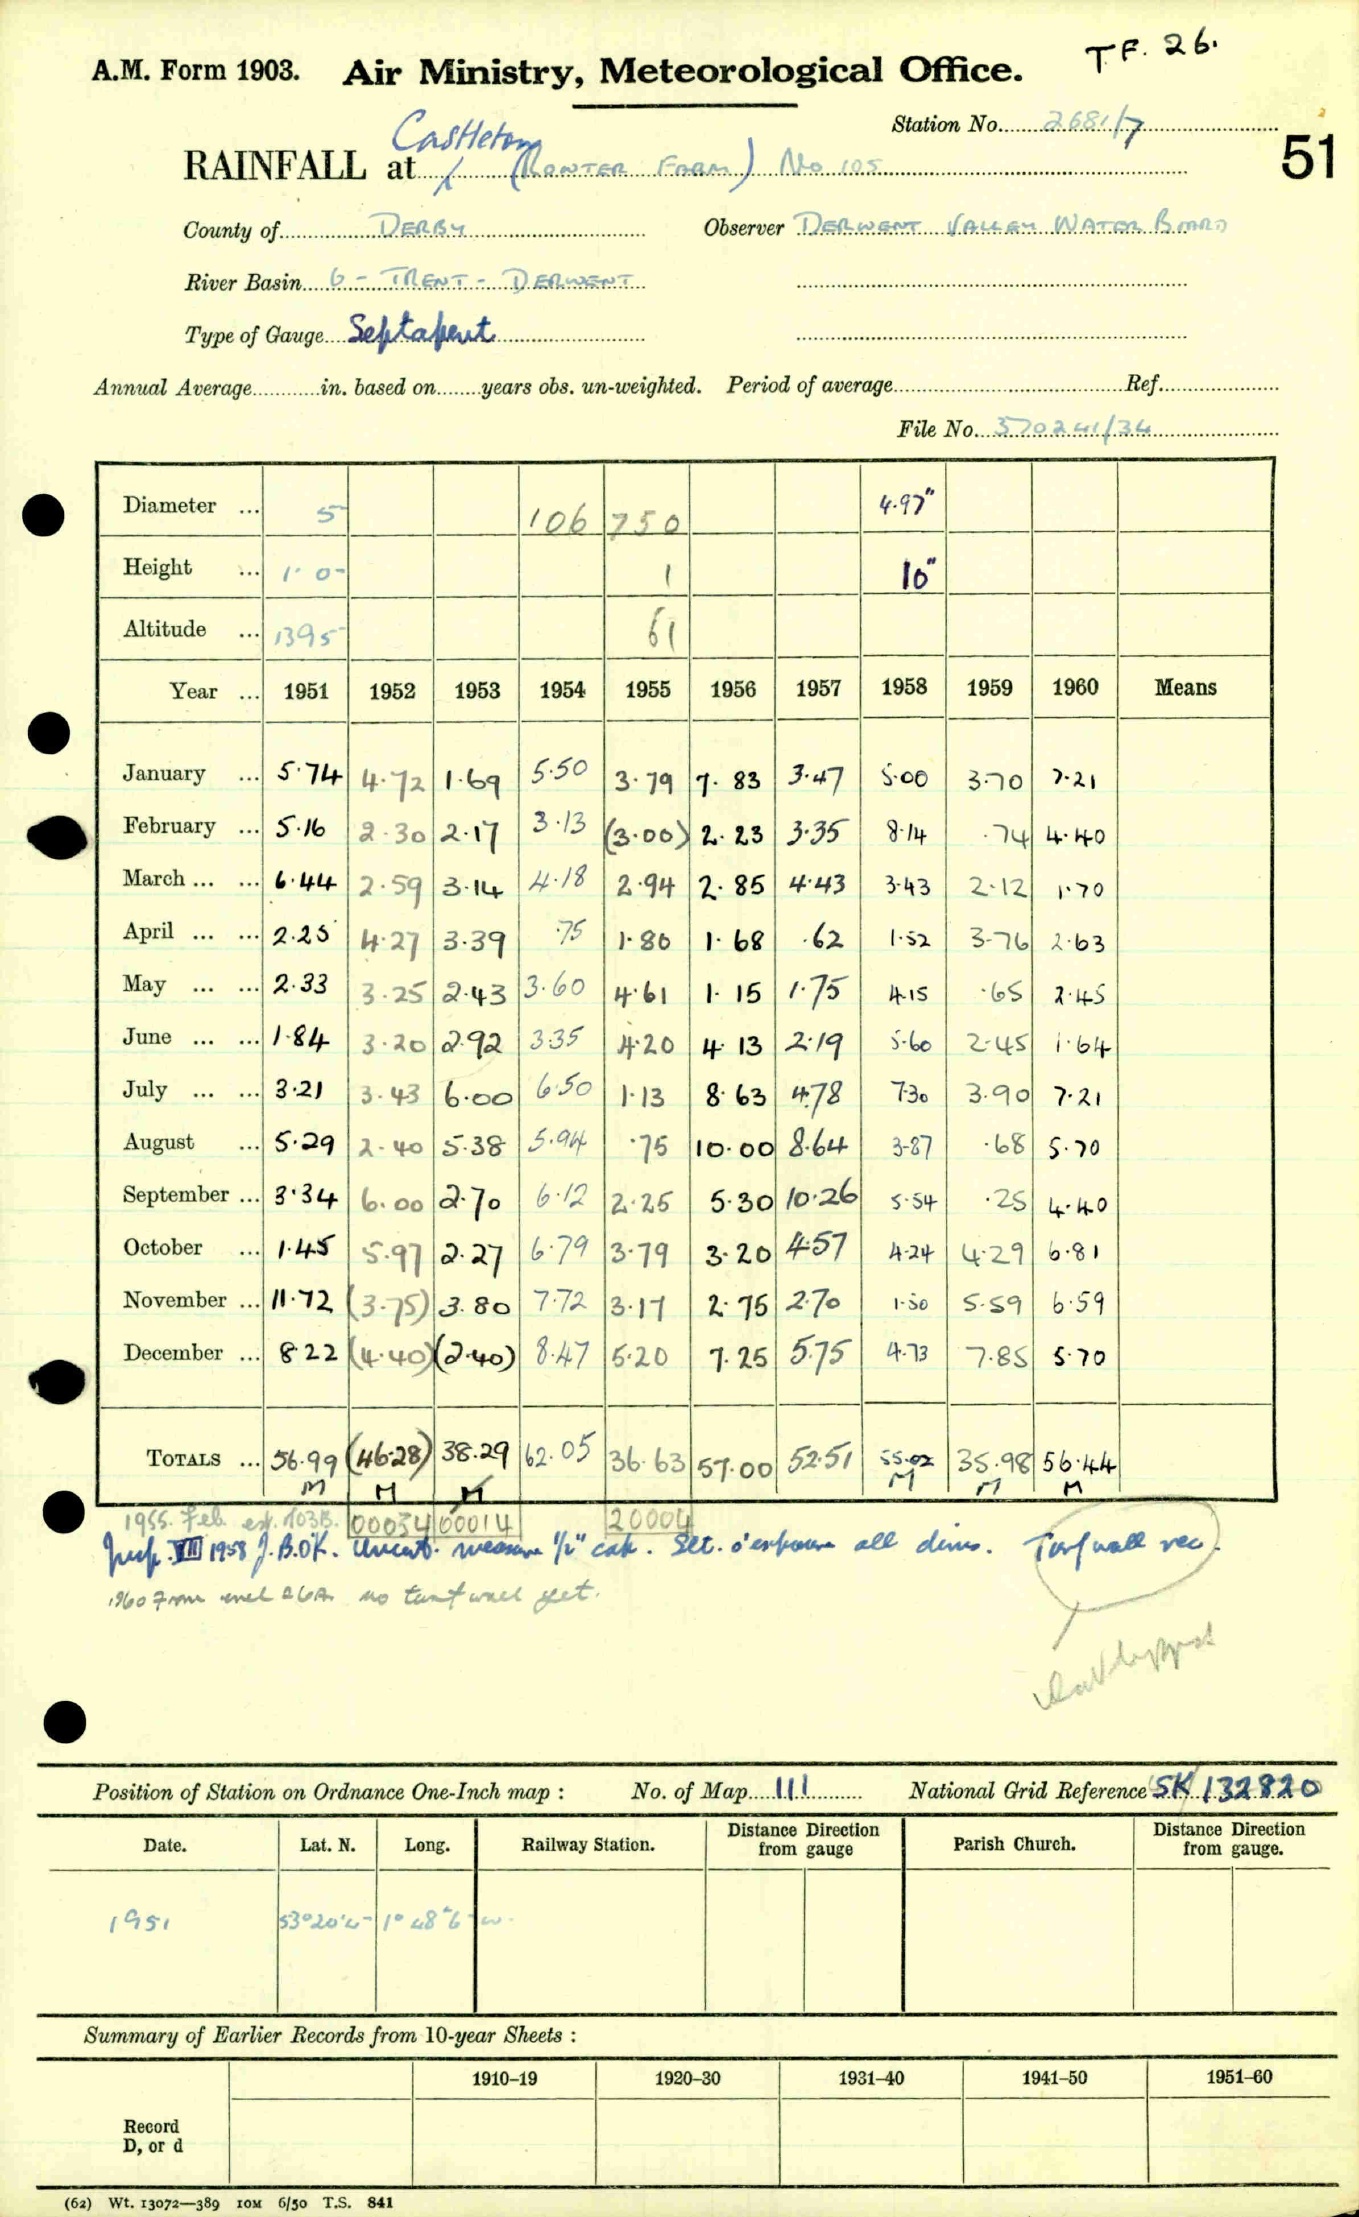 T.F. 26.
A.M. Form 1903. Air Ministry, Meteorological Office.
Station No. 2681/7
51
Castleton
RAINFALL at (Rowter Farm) No 105
County of Derby Observer Derwent Valley Water Board
River Basin 6 - Trent - Derwent
Type of Gauge Septapent
Annual Average in. based on years obs. un-weighted. Period of average Ref.
File No. 570241/34
Diameter ... 5 106 750 4.97"
Height ... 1' 0" 1 10"
Altitude ... 1395 61
Year ... 1951 1952 1953 1954 1955 1956 1957 1958 1959 1960 Means
January ... 5.74 4.72 1.69 5.50 3.79 7.83 3.47 5.00 3.70 7.21
February ... 5.16 2.30 2.17 3.13 (3.00) 2.23 3.35 8.14 .74 4.40
March ... ... 6.44 2.59 3.14 4.18 2.94 2.85 4.43 3.43 2.12 1.70
April ... ... 2.25 4.27 3.39 .75 1.80 1.68 .62 1.52 3.76 2.63
May ... ... 2.33 3.25 2.43 3.60 4.61 1.15 1.75 4.15 .65 2.45
June ... ... 1.84 3.20 2.92 3.35 4.20 4.13 2.19 5.60 2.45 1.64
July ... ... 3.21 3.43 6.00 6.50 1.13 8.63 4.78 7.30 3.90 7.21
August ... 5.29 2.40 5.38 5.94 .75 10.00 8.64 3.87 .68 5.70
September ... 3.34 6.00 2.70 6.12 2.25 5.30 10.26 5.54 .25 4.40
October ... 1.45 5.97 2.27 6.79 3.79 3.20 4.57 4.24 4.29 6.81
November ... 11.72 (3.75) 3.80 7.72 3.17 2.75 2.70 1.50 5.59 6.59
December ... 8.22 (4.40) (2.40) 8.47 5.20 7.25 5.75 4.73 7.85 5.70
Totals ... 56.99 (46.28) 38.29 62.05 36.63 57.00 52.51 55.02 35.98 56.44
M M M M M M
1955. Feb. est. 103B. 00034 00014 20004
Insp. VIII 1958 J.B.O'K. Uncert. measure 1/2" cap. Set. o'exposure all dirns. Turf wall rec.
1960 From encl 26A no turf wall yet.
Position of Station on Ordnance One-Inch map : No. of Map 111 National Grid Reference SK/132820
Date. Lat. N. Long. Railway Station. Distance Direction from gauge Parish Church. Distance Direction from gauge.
1951 53°20'4" 1° 48'6" W.
Summary of Earlier Records from 10-year Sheets :
1910–19 1920–30 1931–40 1941–50 1951–60
Record
D, or d
(62) Wt. 13072—389 10M 6/50 T.S. 841